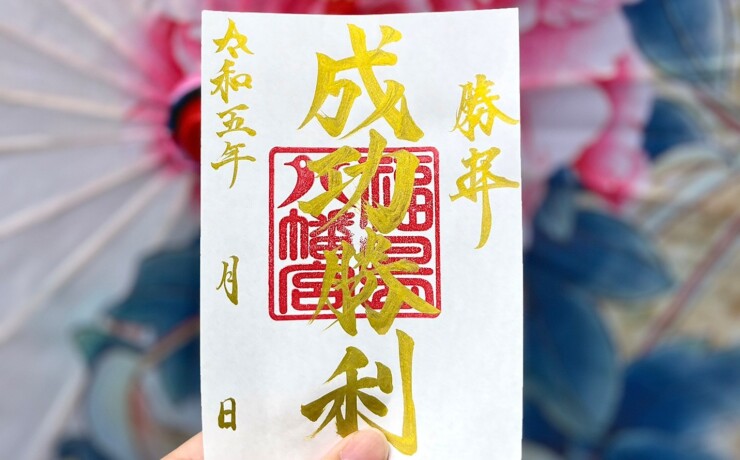 勝拝
成功勝利
福島
八幡宮
令和五年 月 日